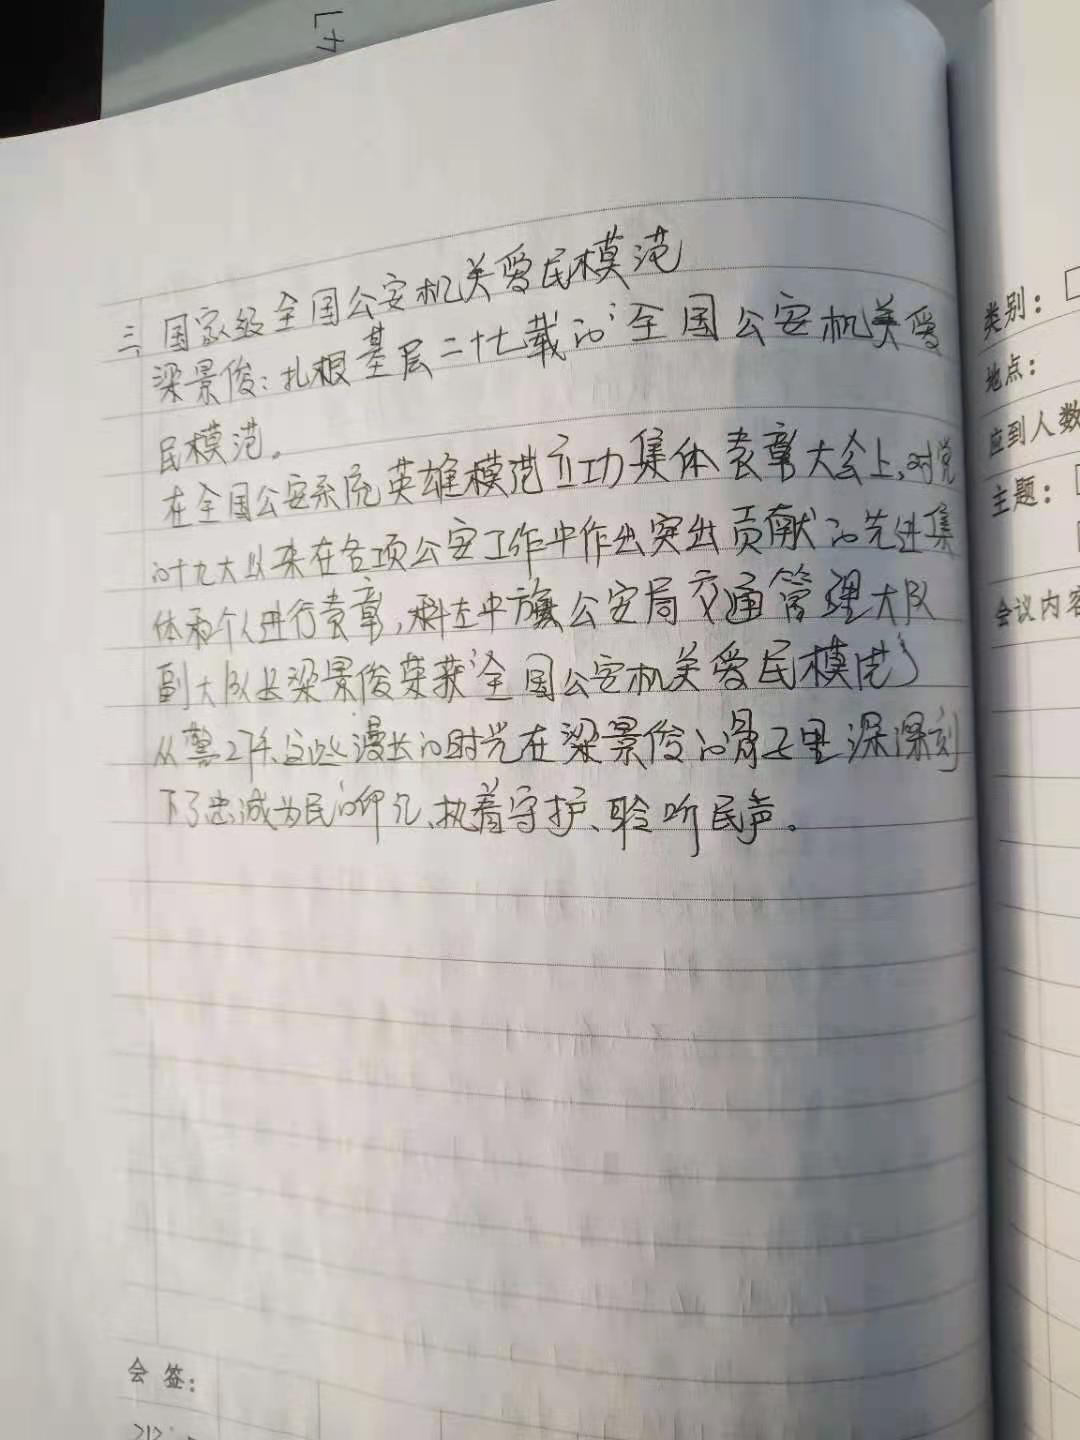 三、国家级全国公安机关爱民模范
梁景俊：扎根基层二十七载的“全国公安机关爱
民模范。
在全国公安系统英雄模范立功集体表彰大会上，对党
的十九大以来在各项公安工作中作出突出贡献的先进集
体和个人进行表章，科左中旗公安局交通管理大队
副大队长梁景俊荣获“全国公安机关爱民模范”
从警27年、这些漫长的时光在梁景俊的骨子里深深刻
下了忠诚为民的印记、执着守护、聆听民声。
会签：
类别：
地点：
应到人数
主题：
会议内容